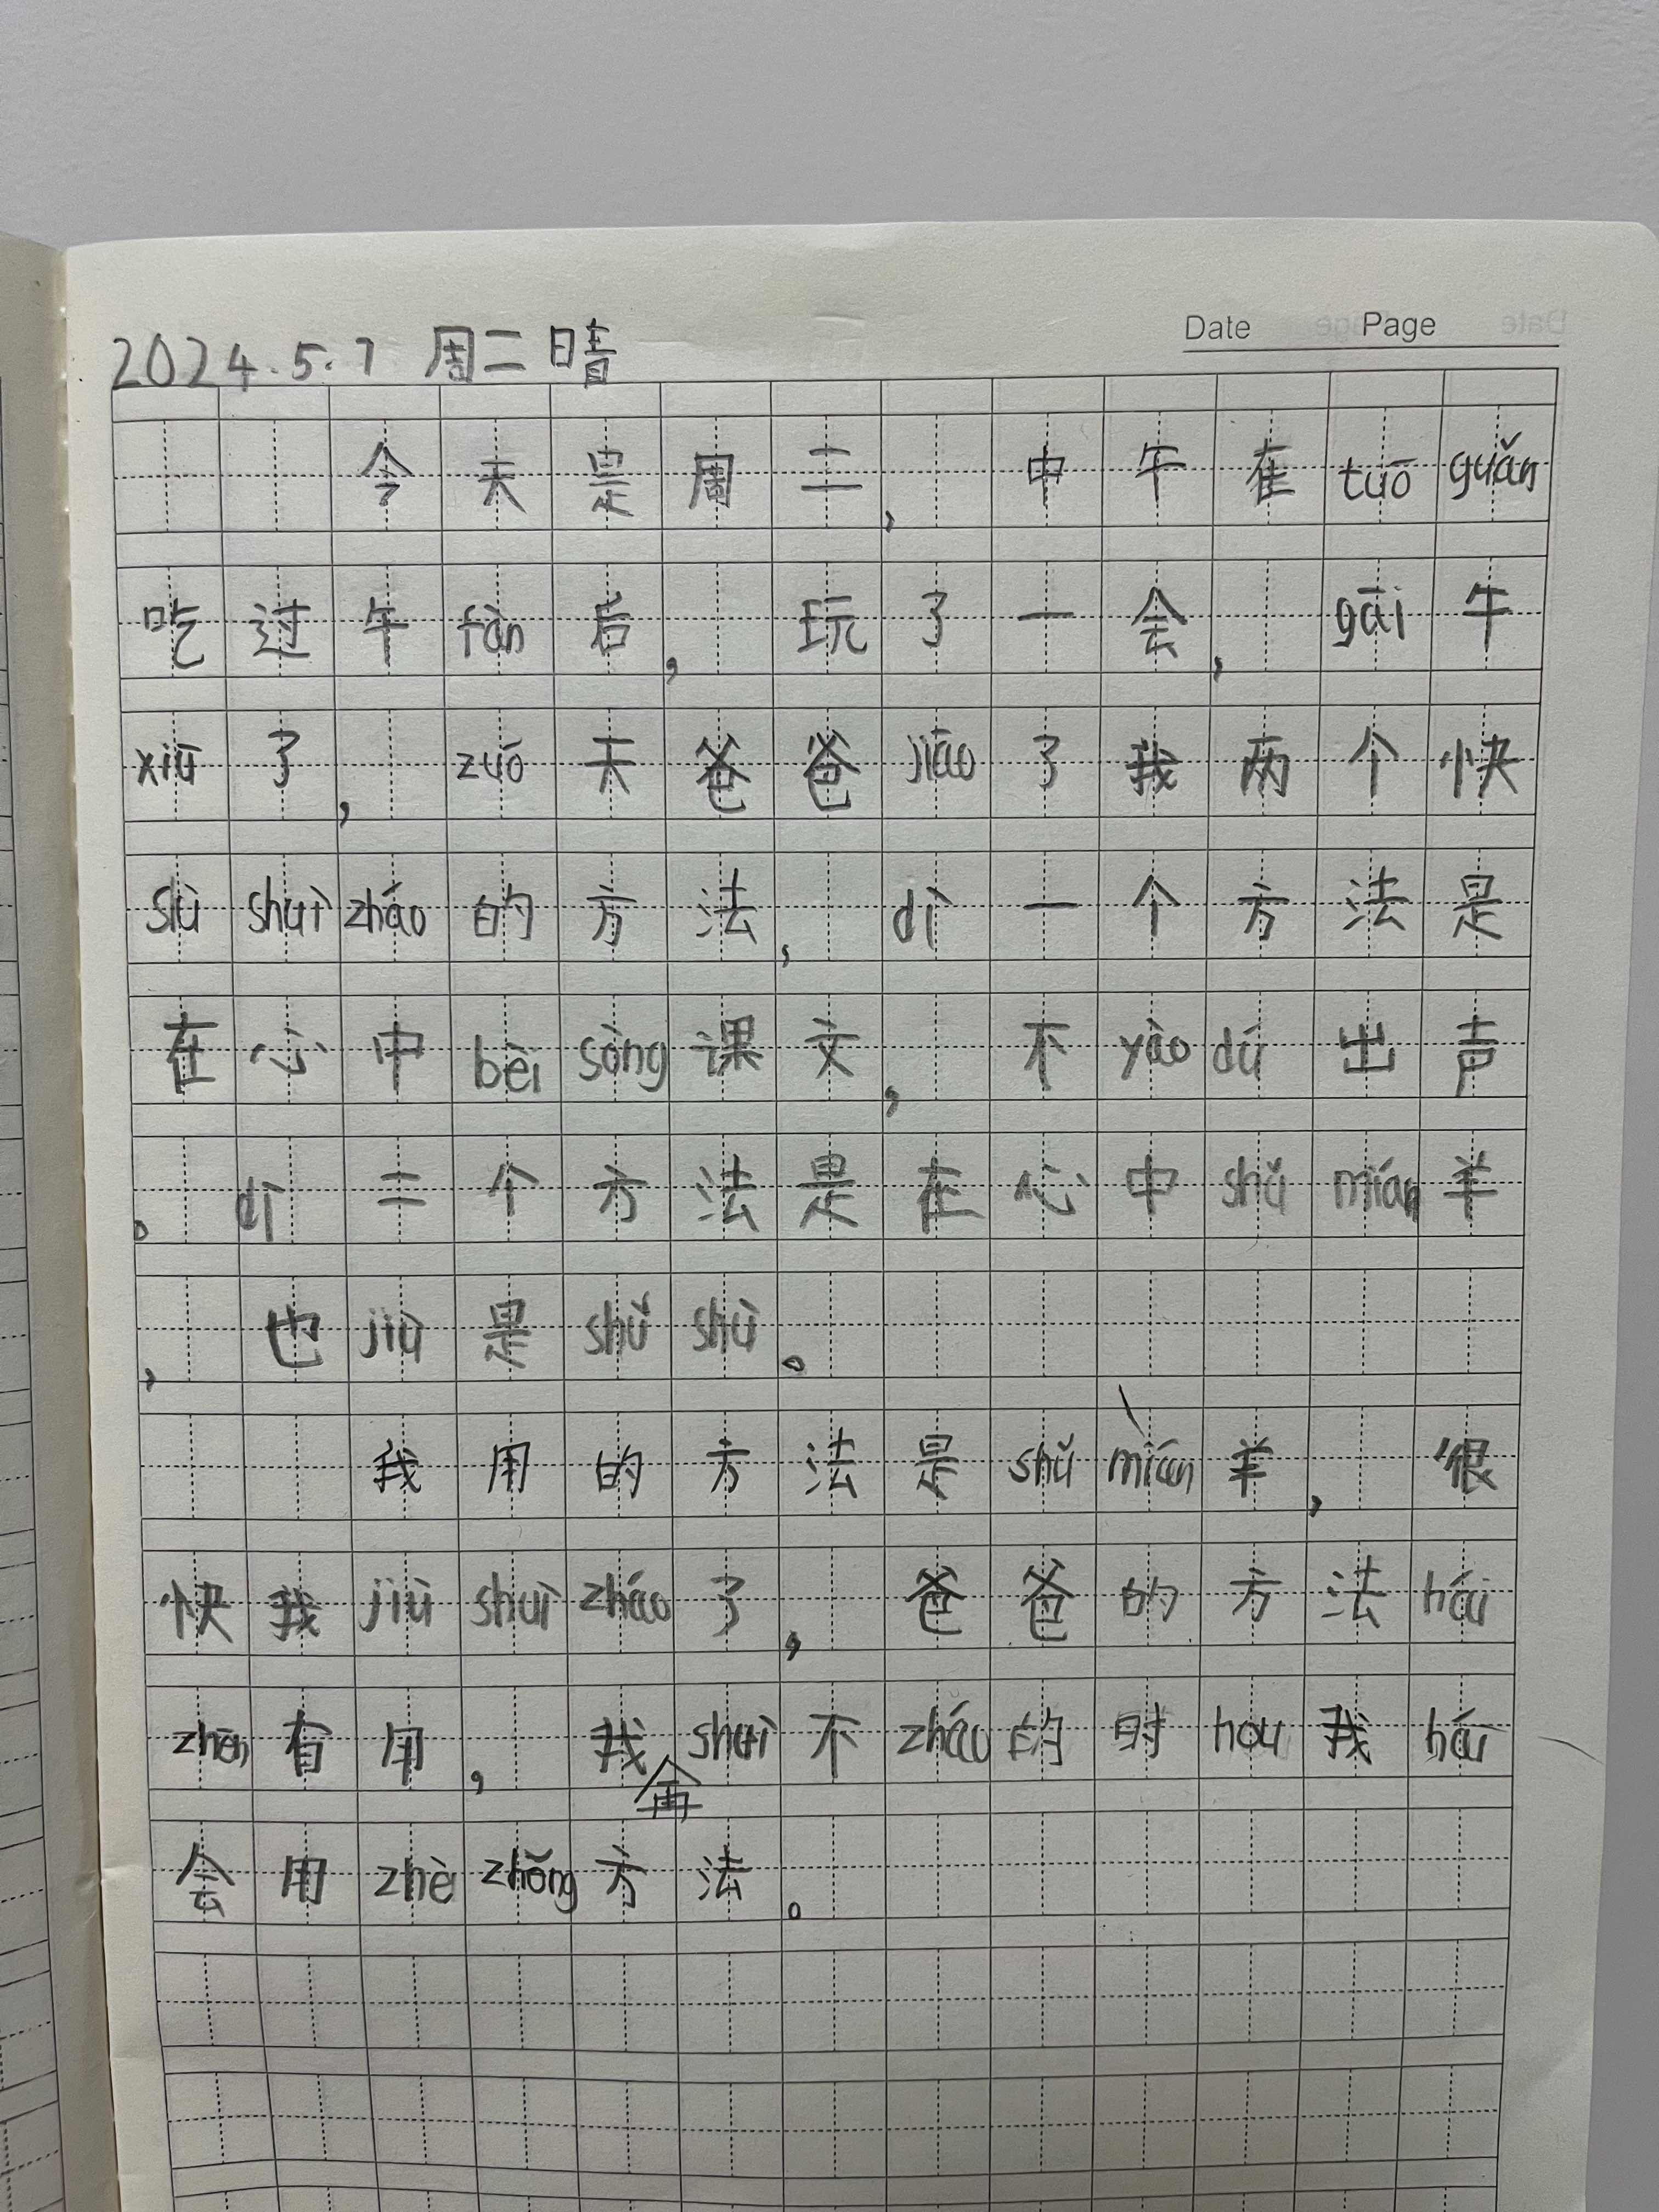 Date Page
2024.5.7 周二 晴
今天是周二，中午在tuō guǎn
吃过午fàn后，玩了一会，gāi午
xiū了，zuó天爸爸jiāo了我两个快
sù shuì zháo的方法，dì一个方法是
在心中bèi sòng课文，不yào dú出声
。dì二个方法是在心中shǔ mián羊
，也jiù是shǔ shù。
我用的方法是shǔ mián羊，很
快我jiù shuì zháo了，爸爸的方法hái
zhēn有用，我shuì不zháo的时hou我hái
会用zhè zhǒng方法。